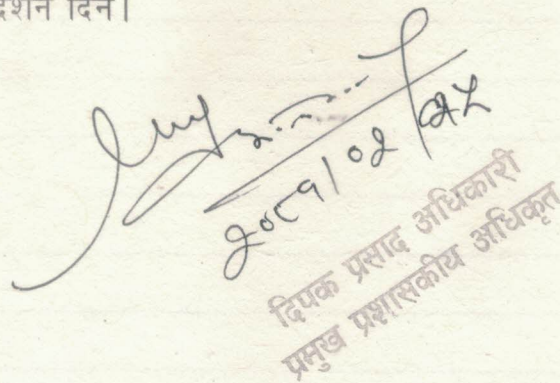 दर्शन दिने।
२०८१/०२/२५
दिपक प्रसाद अधिकारी
प्रमुख प्रशासकीय अधिकृत